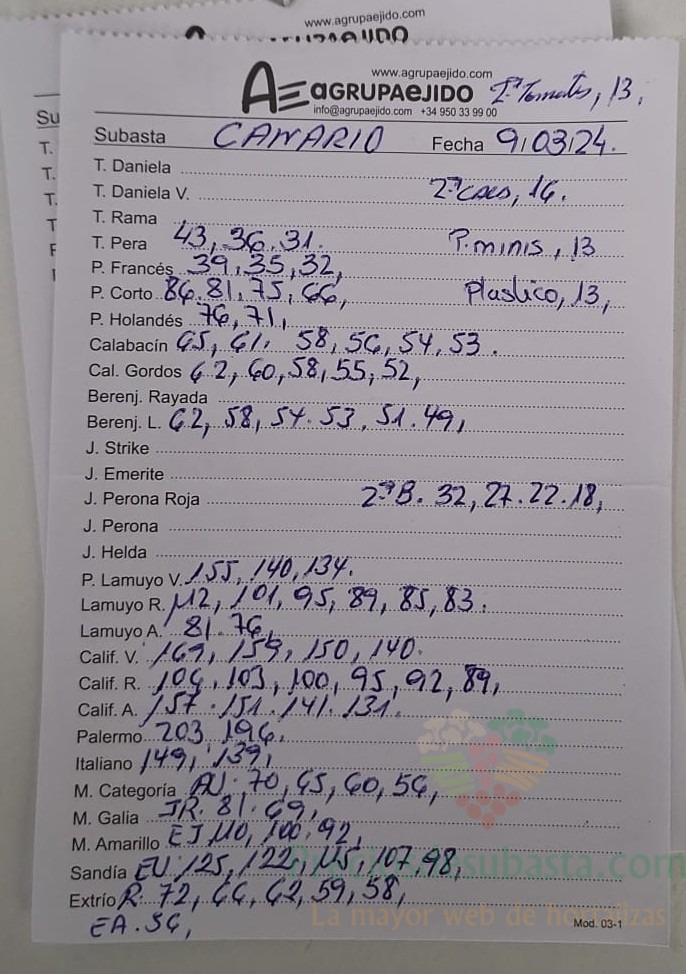 www.agrupaejido.com
www.agrupaejido.com
AGRUPAEJIDO 2ª Tomates, 13,
info@agrupaejido.com +34 950 33 99 00
Subasta CANARIO Fecha 9/03/24.
T. Daniela
T. Daniela V. 2ª 16.
T. Rama
T. Pera 43, 36, 31. P. minis, 13
P. Francés 39, 35, 32,
P. Corto 86. 81, 75, 66, Plastico, 13,
P. Holandés 76, 71,
Calabacín 65, 61, 58, 56, 54, 53.
Cal. Gordos 62, 60, 58, 55, 52,
Berenj. Rayada
Berenj. L. 62, 58, 54. 53, 51. 49,
J. Strike
J. Emerite
J. Perona Roja 2ªB. 32, 27. 22. 18,
J. Perona
J. Helda
P. Lamuyo V. 155, 140, 134.
Lamuyo R. 112, 101, 95, 89, 85, 83.
Lamuyo A. 81. 76,
Calif. V. 169, 159, 150, 140.
Calif. R. 106, 103, 100, 95, 92, 89,
Calif. A. 157. 151. 141. 131.
Palermo 203, 196.
Italiano 149, 139,
M. Categoría AU. 70, 65, 60, 56,
M. Galia JR. 81. 69,
M. Amarillo EJ 110, 100, 92,
Sandía EU 125, 122, 115, 107, 98,
Extrío R. 72, 66, 62, 59, 58,
La mayor web de hortalizas
EA. 56, Mod. 03-1